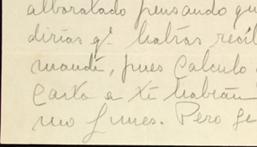 alboratado pensando qu
dirías qᵉ habías recib
mandé, pues calculo
carta a ti habían
mo lunes. Pero ge